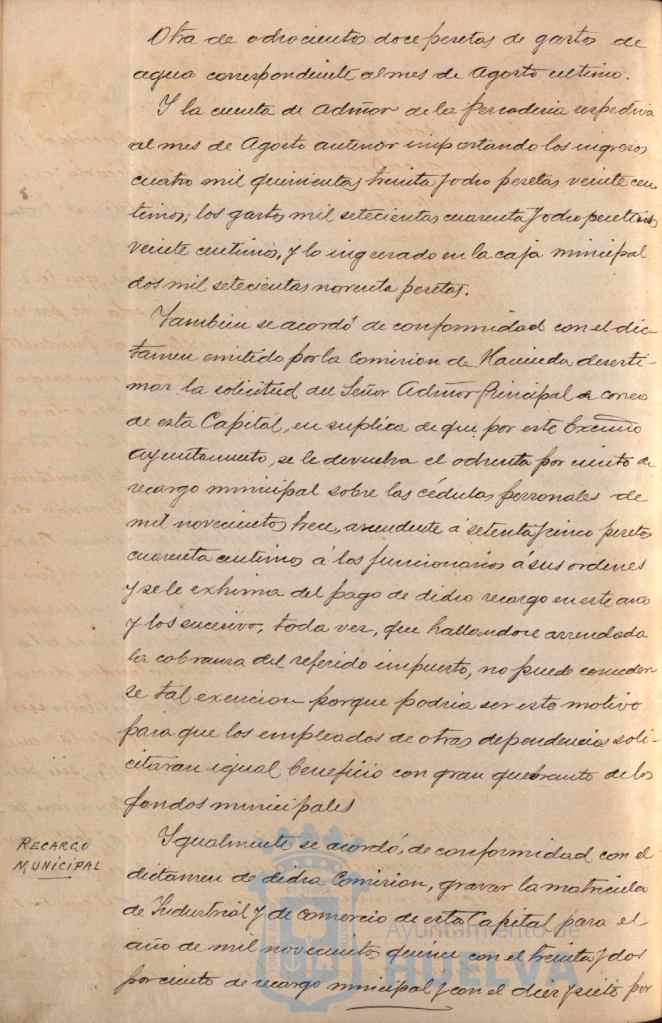 Otra de ochocientos doce pesetas de gastos de
agua correspondiente al mes de Agosto ultimo.
Y la cuenta de Admor de la Pescaderia respectiva
al mes de Agosto anterior importando los ingresos
cuatro mil quinientas treinta y ocho pesetas veinte cen
timos; los gastos mil setecientas cuarenta y ocho pesetas
veinte centimos, y lo ingresado en la caja municipal
dos mil setecientas noventa pesetas.
Tambien se acordó de conformidad con el dic
tamen emitido por la Comision de Hacienda desesti-
mar la solicitud del Señor Admor Principal de correos
de esta Capital, en suplica de que por este Excmo
Ayuntamiento, se le devuelva el ochenta por ciento de
recargo municipal sobre las cédulas personales de
mil novecientos trece, ascendente á setenta y cinco pesetas
cuarenta centimos á los funcionarios á sus ordenes
y se le exhima del pago de dicho recargo en este año
y los sucesivo, toda vez, que hallandose arrendada
la cobranza del referido impuesto, no puede conceder
se tal exencion porque podria ser esto motivo
para que los empleados de otras dependencias soli-
citaran igual beneficio con gran quebranto de los
fondos municipales
RECARGO
MUNICIPAL
Igualmente se acordó, de conformidad con el
dictamen de dicha Comision, gravar la matricula
de Industrial y de comercio de esta Capital para el
año de mil novecientos quince con el treinta y dos
por ciento de recargo municipal y con el diez y siete por
Ayuntamiento de
HUELVA